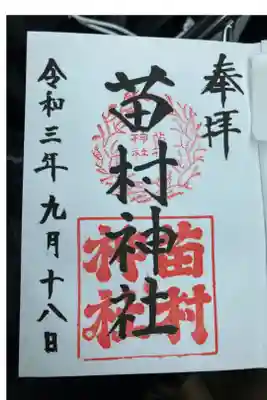 奉拝
苗村神社
苗村
神社
令和三年九月十八日